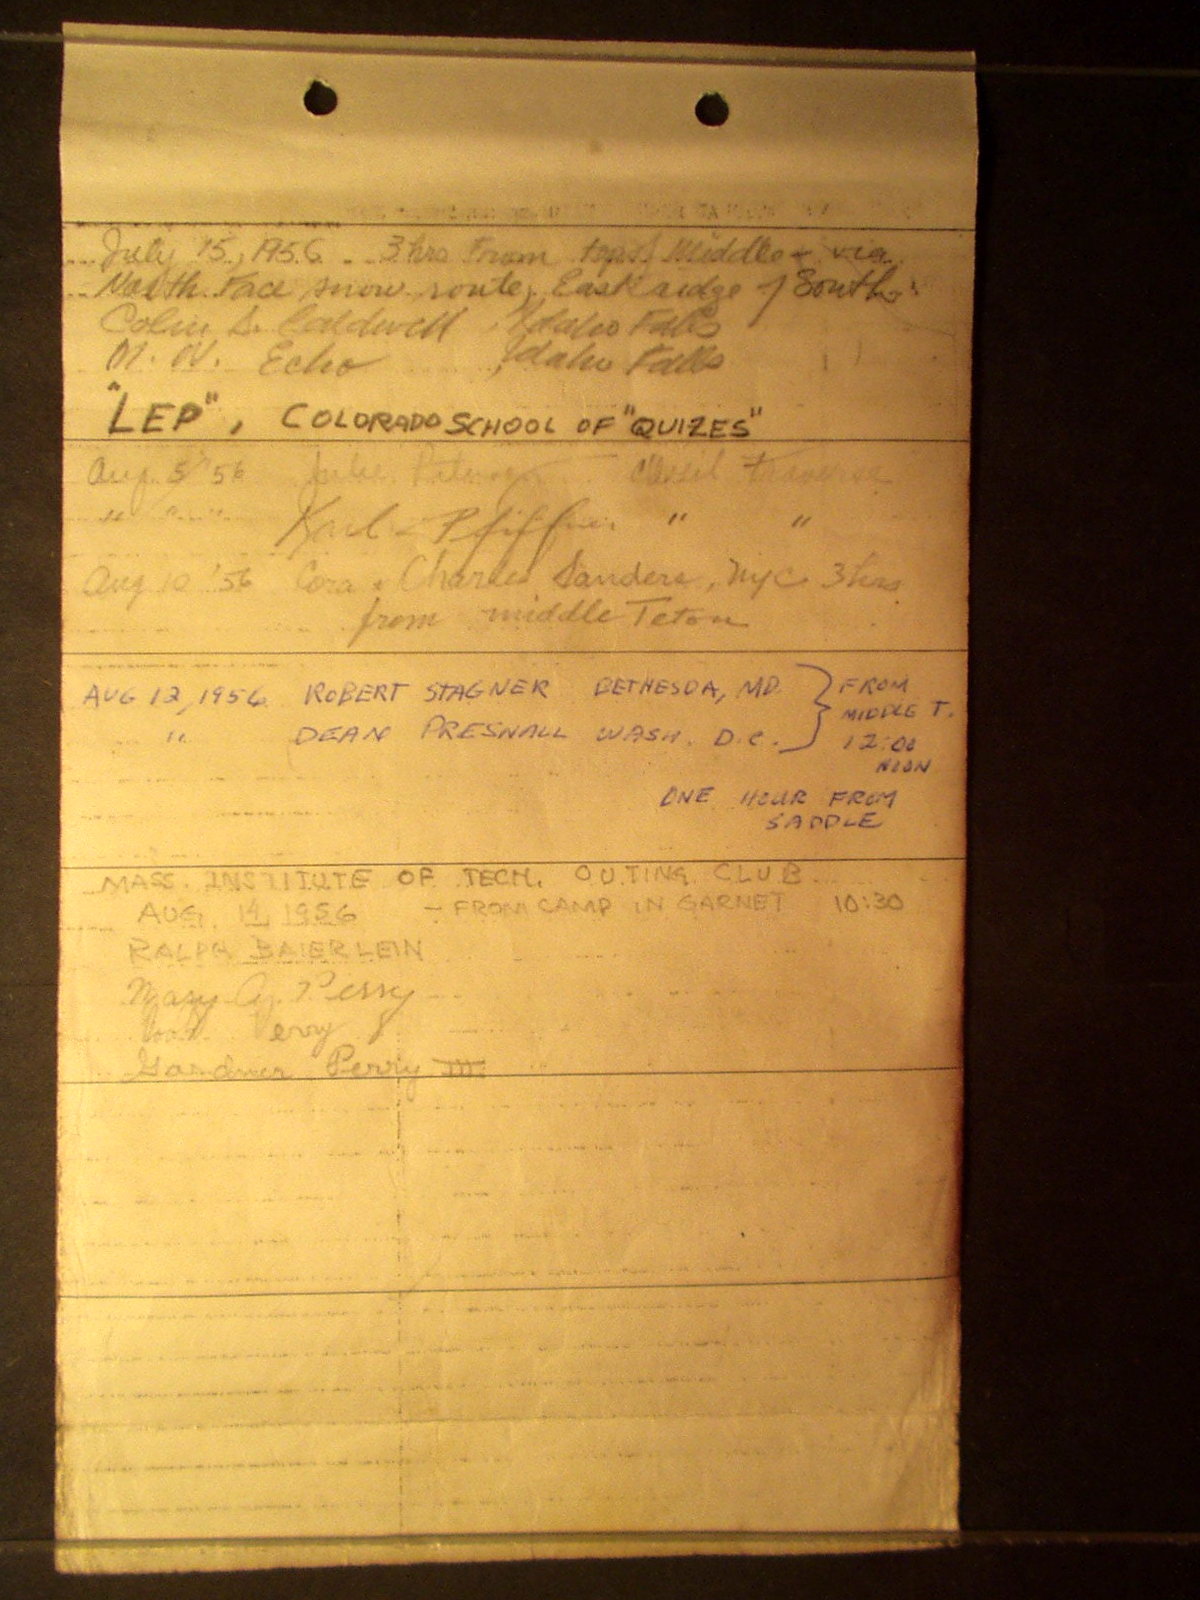 July 15, 1956 3hrs From top of Middle - via
North Face snow route, East ridge of South.
Colin S. Caldwell, Idaho Falls
M. W. Echo, Idaho Falls
"LEP", COLORADO SCHOOL OF "QUIZES"
Aug. 5 '56 Traverse
" " " Karl Pfiffner " "
Aug 10 '56 Cora & Charles Sanders, NYC 3hrs
from middle Teton
AUG 12, 1956 ROBERT STAGNER BETHESDA, MD. } FROM
MIDDLE T.
" DEAN PRESNALL WASH. D.C. } 12:00
NOON
ONE HOUR FROM
SADDLE
MASS. INSTITUTE OF TECH. OUTING CLUB
AUG. 14, 1956 - FROM CAMP IN GARNET 10:30
RALPH BAIERLEIN
Mary G. Perry
Perry
Gardner Perry III